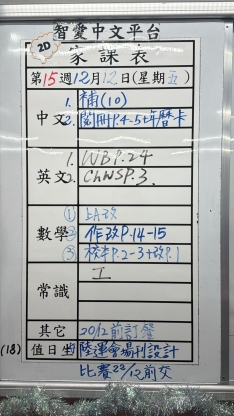 智愛中文平台
2D
家課表
第15週12月12日(星期五)
中文
1. 補(10)
2. 閱冊P.4-5+年曆卡
英文
1. WB P.24
2. ChWS P.3.
數學
① 上A改
② 作改P.14-15
③ 校本P.2-3+改P.1
常識
工
其它
20/12前訂餐
(18) 值日生
陸運會場刊設計
比賽22/12前交